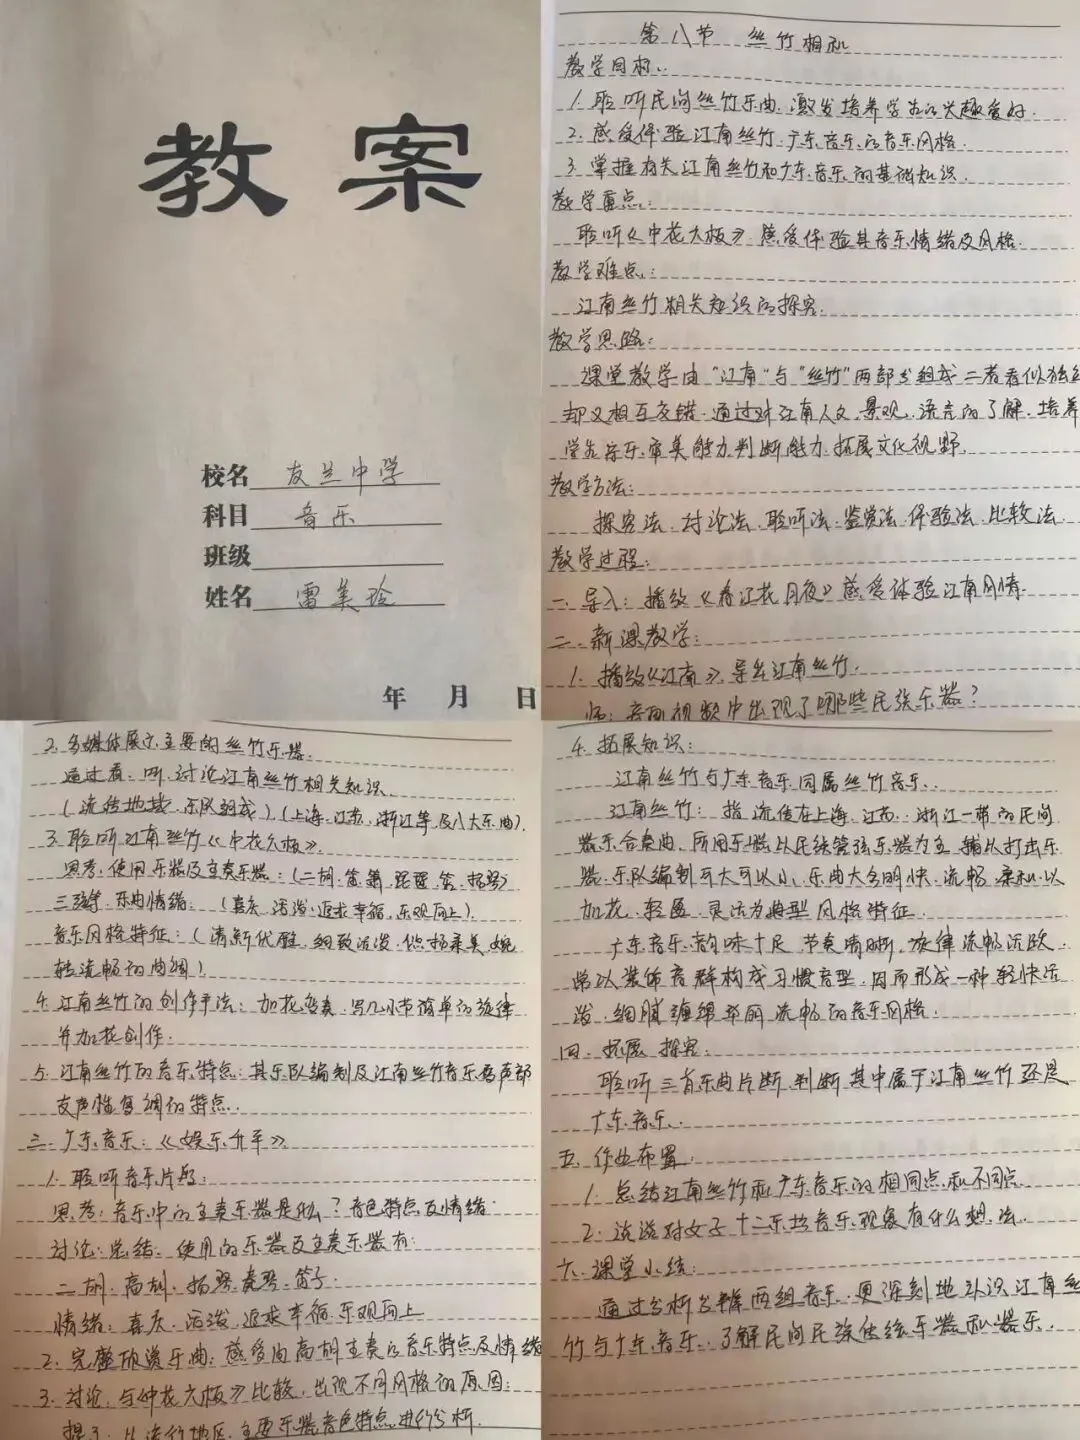 教案
校名 友兰中学
科目 音乐
班级
姓名 雷美玲
年 月 日
第八节 丝竹相和
教学目标:
1. 聆听民间丝竹乐曲,激发培养学生的兴趣爱好.
2. 感受体验江南丝竹、广东音乐的音乐风格.
3. 掌握有关江南丝竹和广东音乐的基础知识.
教学重点:
聆听《中花六板》感受体验其音乐情绪及风格.
教学难点:
江南丝竹相关知识的探究.
教学思路:
课堂教学由"江南"与"丝竹"两部分组成二者看似独立
却又相互交错.通过对江南人文、景观、语言的了解.培养
学生音乐审美能力判断能力.拓展文化视野.
教学方法:
探究法.讨论法.聆听法.鉴赏法.体验法.比较法.
教学过程:
一、导入:播放《春江花月夜》感受体验江南风情.
二、新课教学:
1. 播放《江南》,导出江南丝竹.
师:音响视频中出现了哪些民族乐器?
2. 多媒体展示主要的丝竹乐器.
通过看、听、讨论江南丝竹相关知识
(流传地域、乐队组成)(上海、江苏、浙江等及八大乐曲).
3. 聆听江南丝竹《中花六板》.
思考:使用乐器及主奏乐器:(二胡、笛、箫、琵琶、笙、扬琴)
三弦等.乐曲情绪:(喜庆、活泼、追求幸福、乐观向上).
音乐风格特征:(清新优雅、细致流泼、悠扬柔美、婉
转流畅的曲调)
4. 江南丝竹的创作手法:加花变奏.写几小节简单的旋律
并加花创作.
5. 江南丝竹的音乐特点:其乐队编制及江南丝竹音乐多声部
支声性复调的特点.
三、广东音乐:《娱乐升平》
1. 聆听音乐片段:
思考:音乐中的主奏乐器是什么?音色特点及情绪
讨论:总结:使用的乐器及主奏乐器有:
二胡、高胡、扬琴、秦琴、笛子.
情绪:喜庆、活泼、追求幸福、乐观向上
2. 完整欣赏乐曲.感受由高胡主奏的音乐特点及情绪
3. 讨论:与《中花六板》比较,出现不同风格的原因:
提示:从流行地区、主要乐器音色特点进行分析.
4. 拓展知识:
江南丝竹与广东音乐同属丝竹音乐.
江南丝竹:指流传在上海、江苏、浙江一带的民间
器乐合奏曲,所用乐器以民族管弦乐器为主.辅以打击乐
器.乐队编制可大可以小.乐曲大多明快、流畅、柔和.以
加花、轻盈、灵活为典型风格特征.
广东音乐韵味十足.节奏清晰.旋律流畅活跃.
常以装饰音群构成习惯音型,因而形成一种轻快活
泼、细腻缠绵、华丽流畅的音乐风格.
四、拓展探究:
聆听三首乐曲片断.判断其中属于江南丝竹还是
广东音乐.
五、作业布置:
1. 总结江南丝竹和广东音乐的相同点和不同点.
2. 谈谈对女子十二乐坊音乐现象有什么想法.
六、课堂小结:
通过分析分辨两组音乐.更深刻地认识江南丝
竹与广东音乐.了解民间民族传统乐器和器乐.